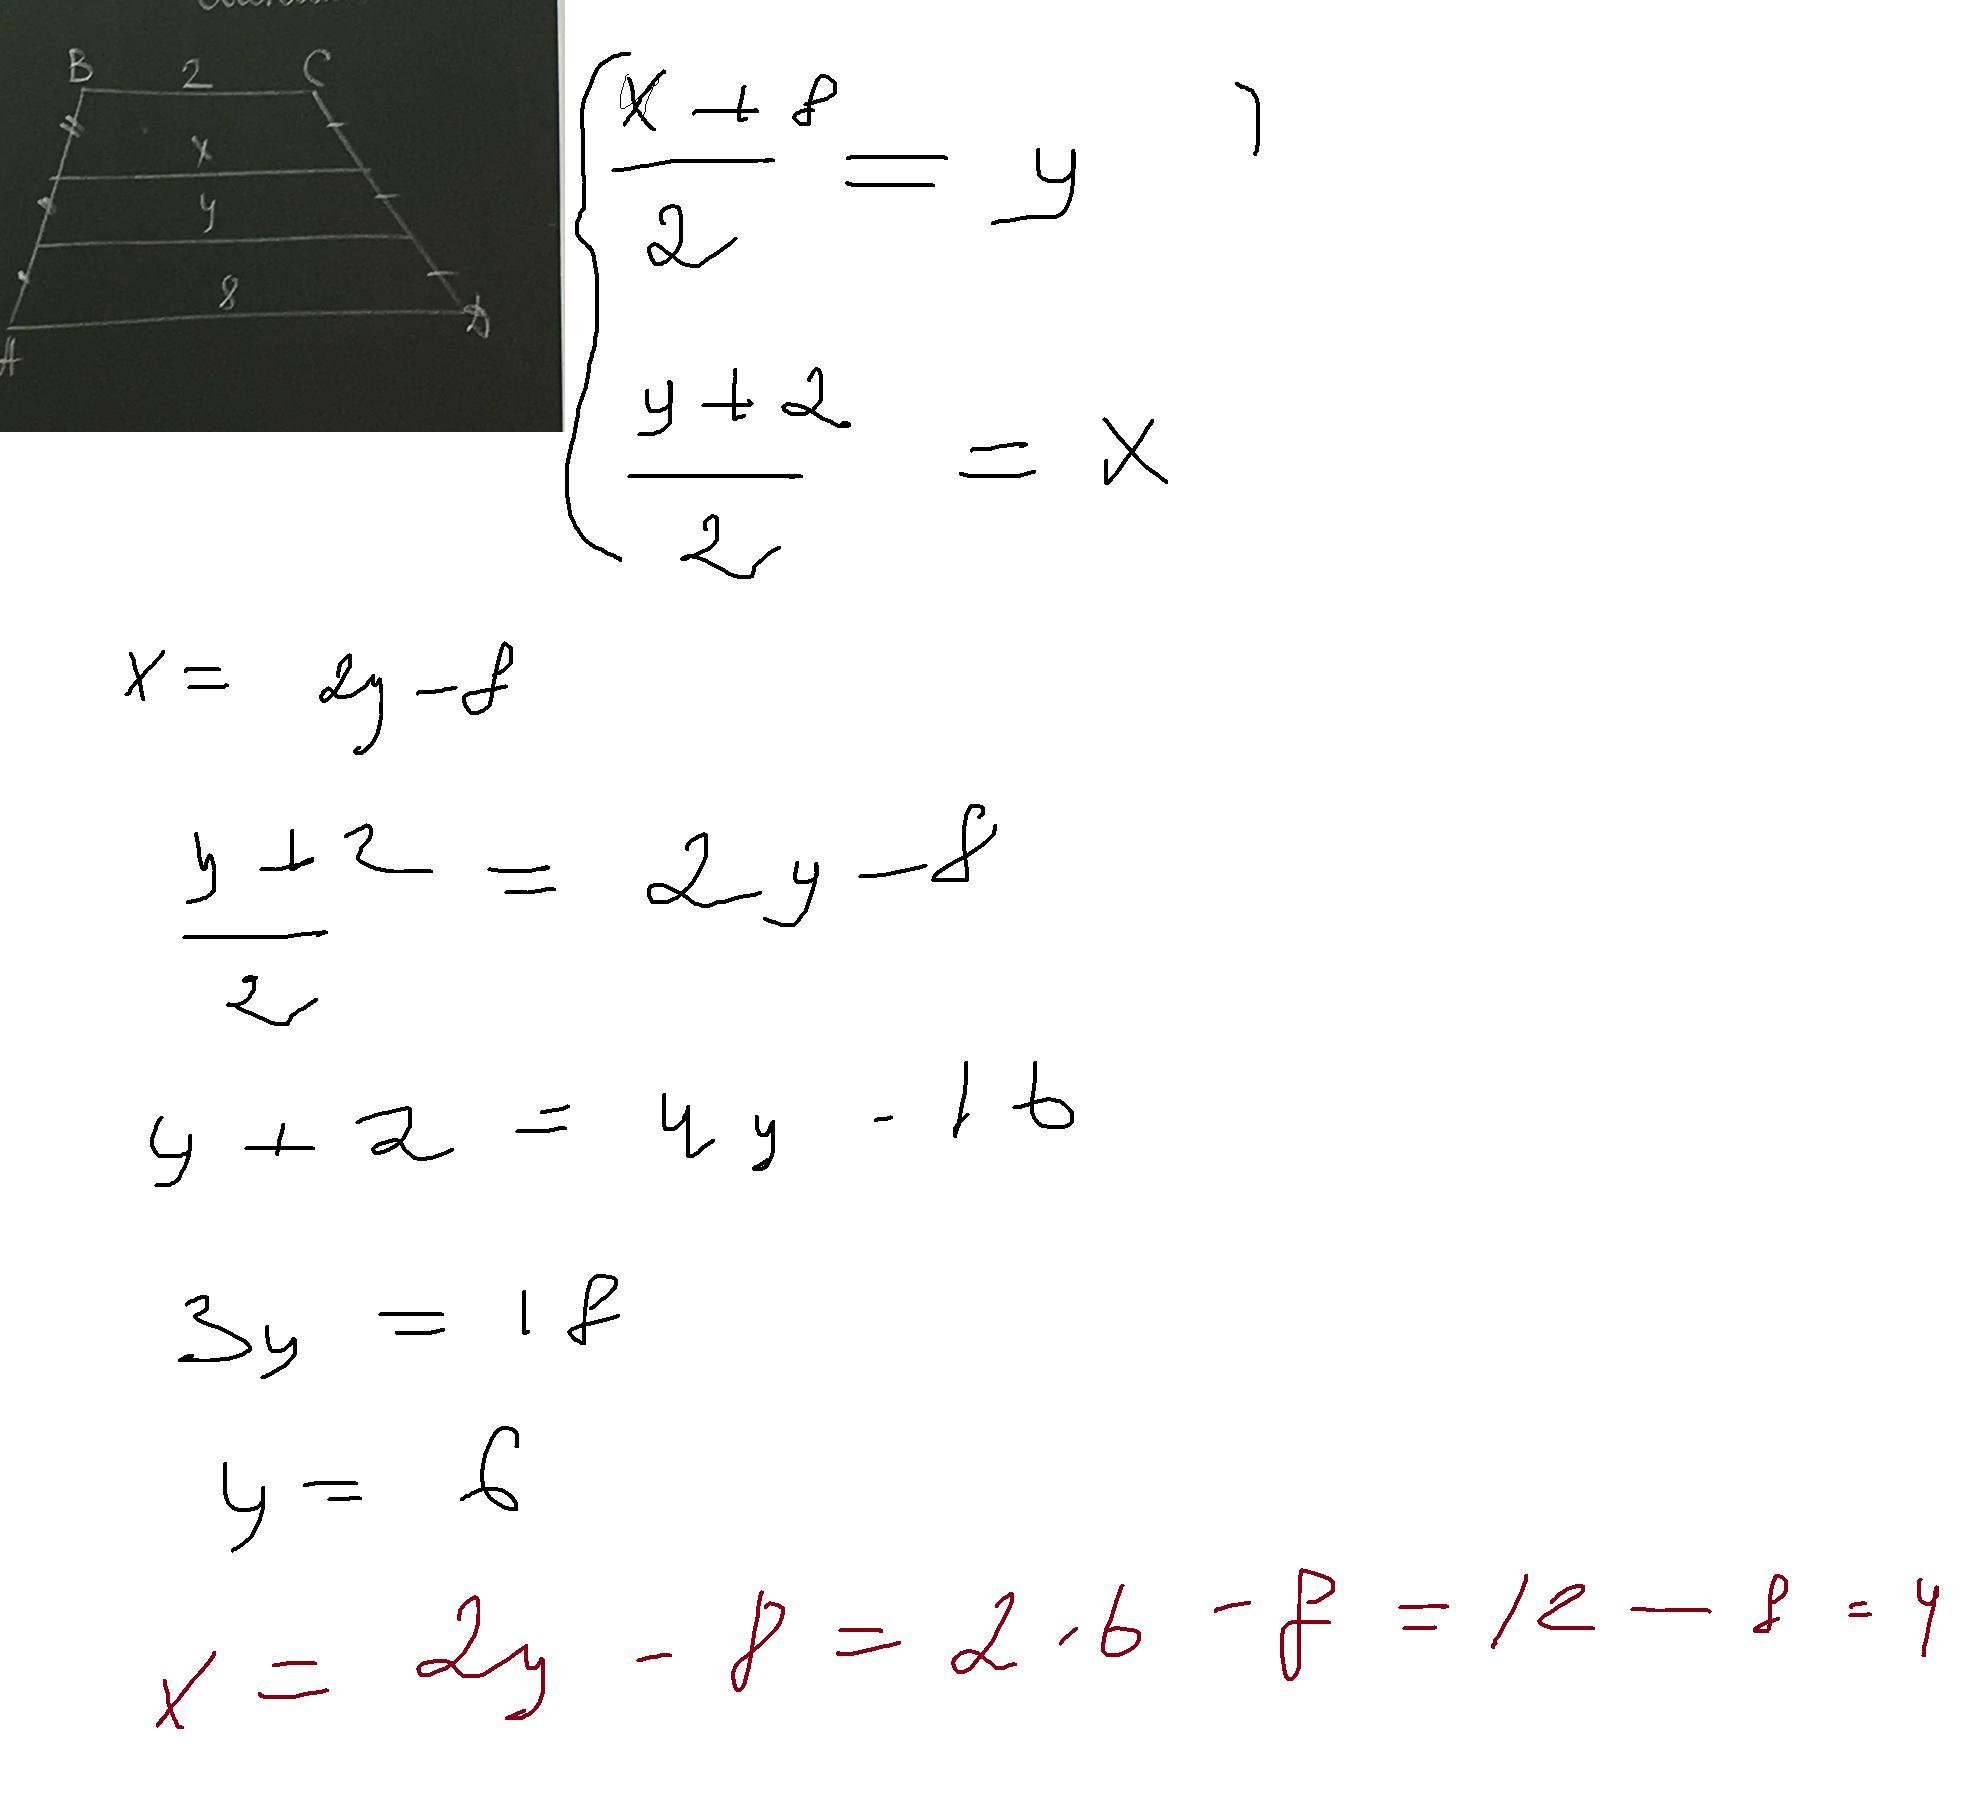 B 2 C
x
y
8
A D
x + 8
2
= y
y + 2
2
= x
x = 2y - 8
y + 2 = 2y - 8
2
y + 2 = 4y - 16
3y = 18
y = 6
x = 2y - 8 = 2 · 6 - 8 = 12 - 8 = 4